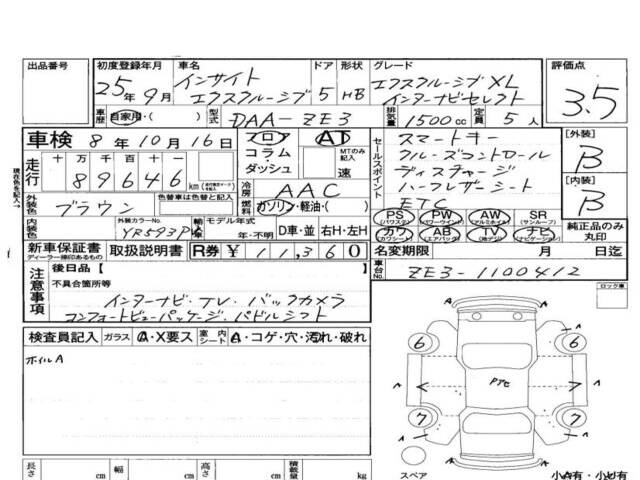 出品番号
初度登録年月 25年9月
車名 インサイト エクスクルーシブ
ドア 5 形状 HB
グレード エクスクルーシブXL インターナビセレクト
評価点 3.5
車歴 自家用・( )
型式 DAA-ZE3
排気量 1500cc 定員 5人
車検 8年10月16日
フロア コラム ダッシュ
AT MTのみ記入 速
セールスポイント
スマートキー
クルーズコントロール
ディスチャージ
ハーフレザーシート
ETC
[外装] B
[内装] B
現在色を記入→
走行 十万千百十一
89646 km
冷房 AAC
燃料 ガソリン・軽油・( )
外装色 ブラウン
色替車は色替と記入
内装色
外装カラーNo. YR593P
輸入車 モデル年式 年・不明 D車・並 右H・左H
PS (パワステ) PW (パワーウインド) AW (アルミホイル) SR (サンルーフ)
カワ (カワシート) AB (エアバック) TV (純テレビ) ナビ (ナビゲーション)
純正品のみ丸印
新車保証書 ディーラー捺印あるもの
取扱説明書
R券 ¥11,360
名変期限 月 日迄
車台No. ZE3-1100412
注意事項
後日品【
不具合箇所等
インターナビ・テレ・バックカメラ
コンフォートビューパッケージ・パドルシフト
ロック車
検査員記入 ガラス A・X要ス 室内 シート A・コゲ・穴・汚れ・破れ
ホイルA
6 6
A
PTC
7 7
スペア
小A有・小U有
長さ cm 幅 cm 高さ cm 積載量 kg